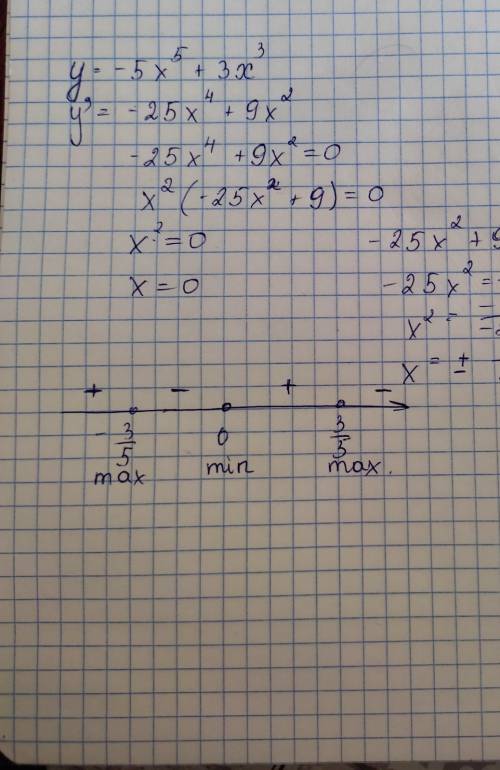 y = -5x⁵ + 3x³
y' = -25x⁴ + 9x²
-25x⁴ + 9x² = 0
x²(-25x² + 9) = 0
x² = 0
x = 0
-25x² + 9
-25x² = -
x² =
x = ±
+ - + -
-3/5 0 3/3
max min max.